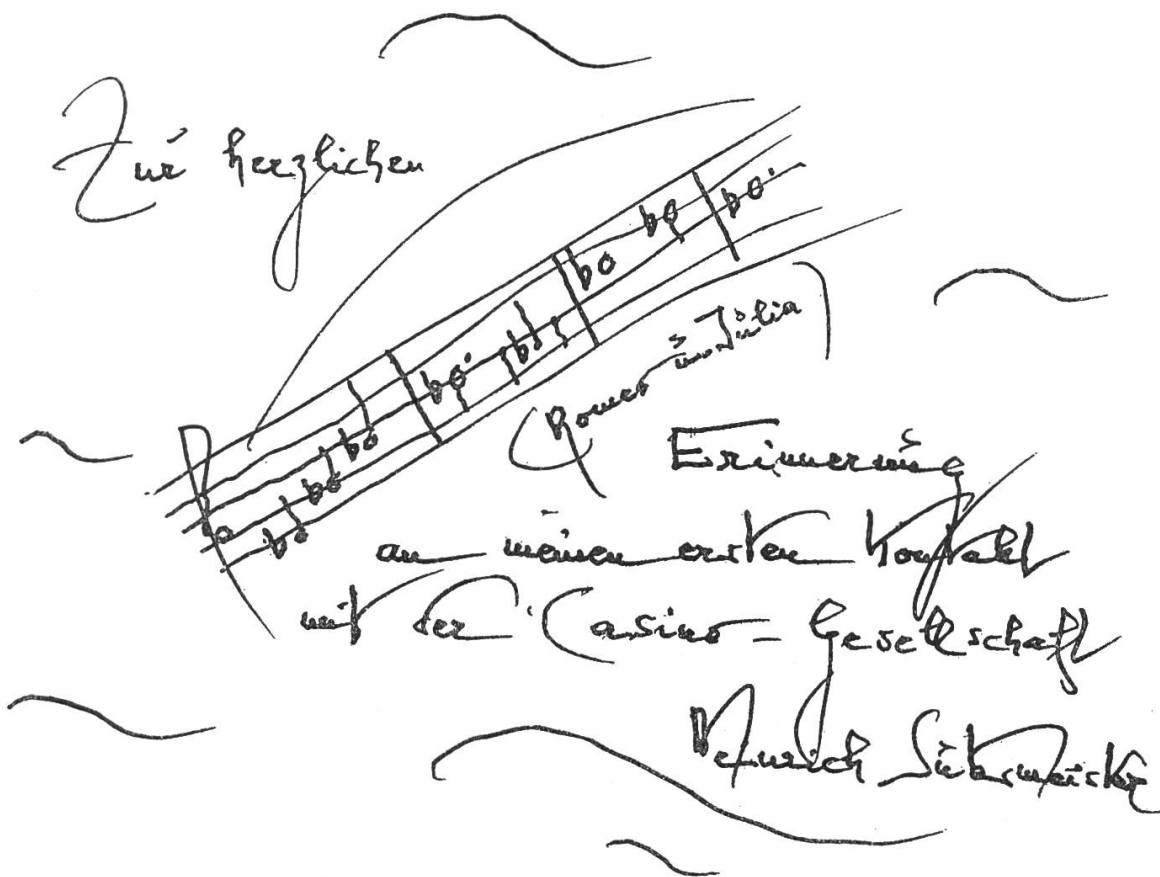 Zur herzlichen
(Romeo u. Julia)
Erinnerung
an meinen ersten Kontakt
mit der Casino=Gesellschaft
Heinrich Sutermeister